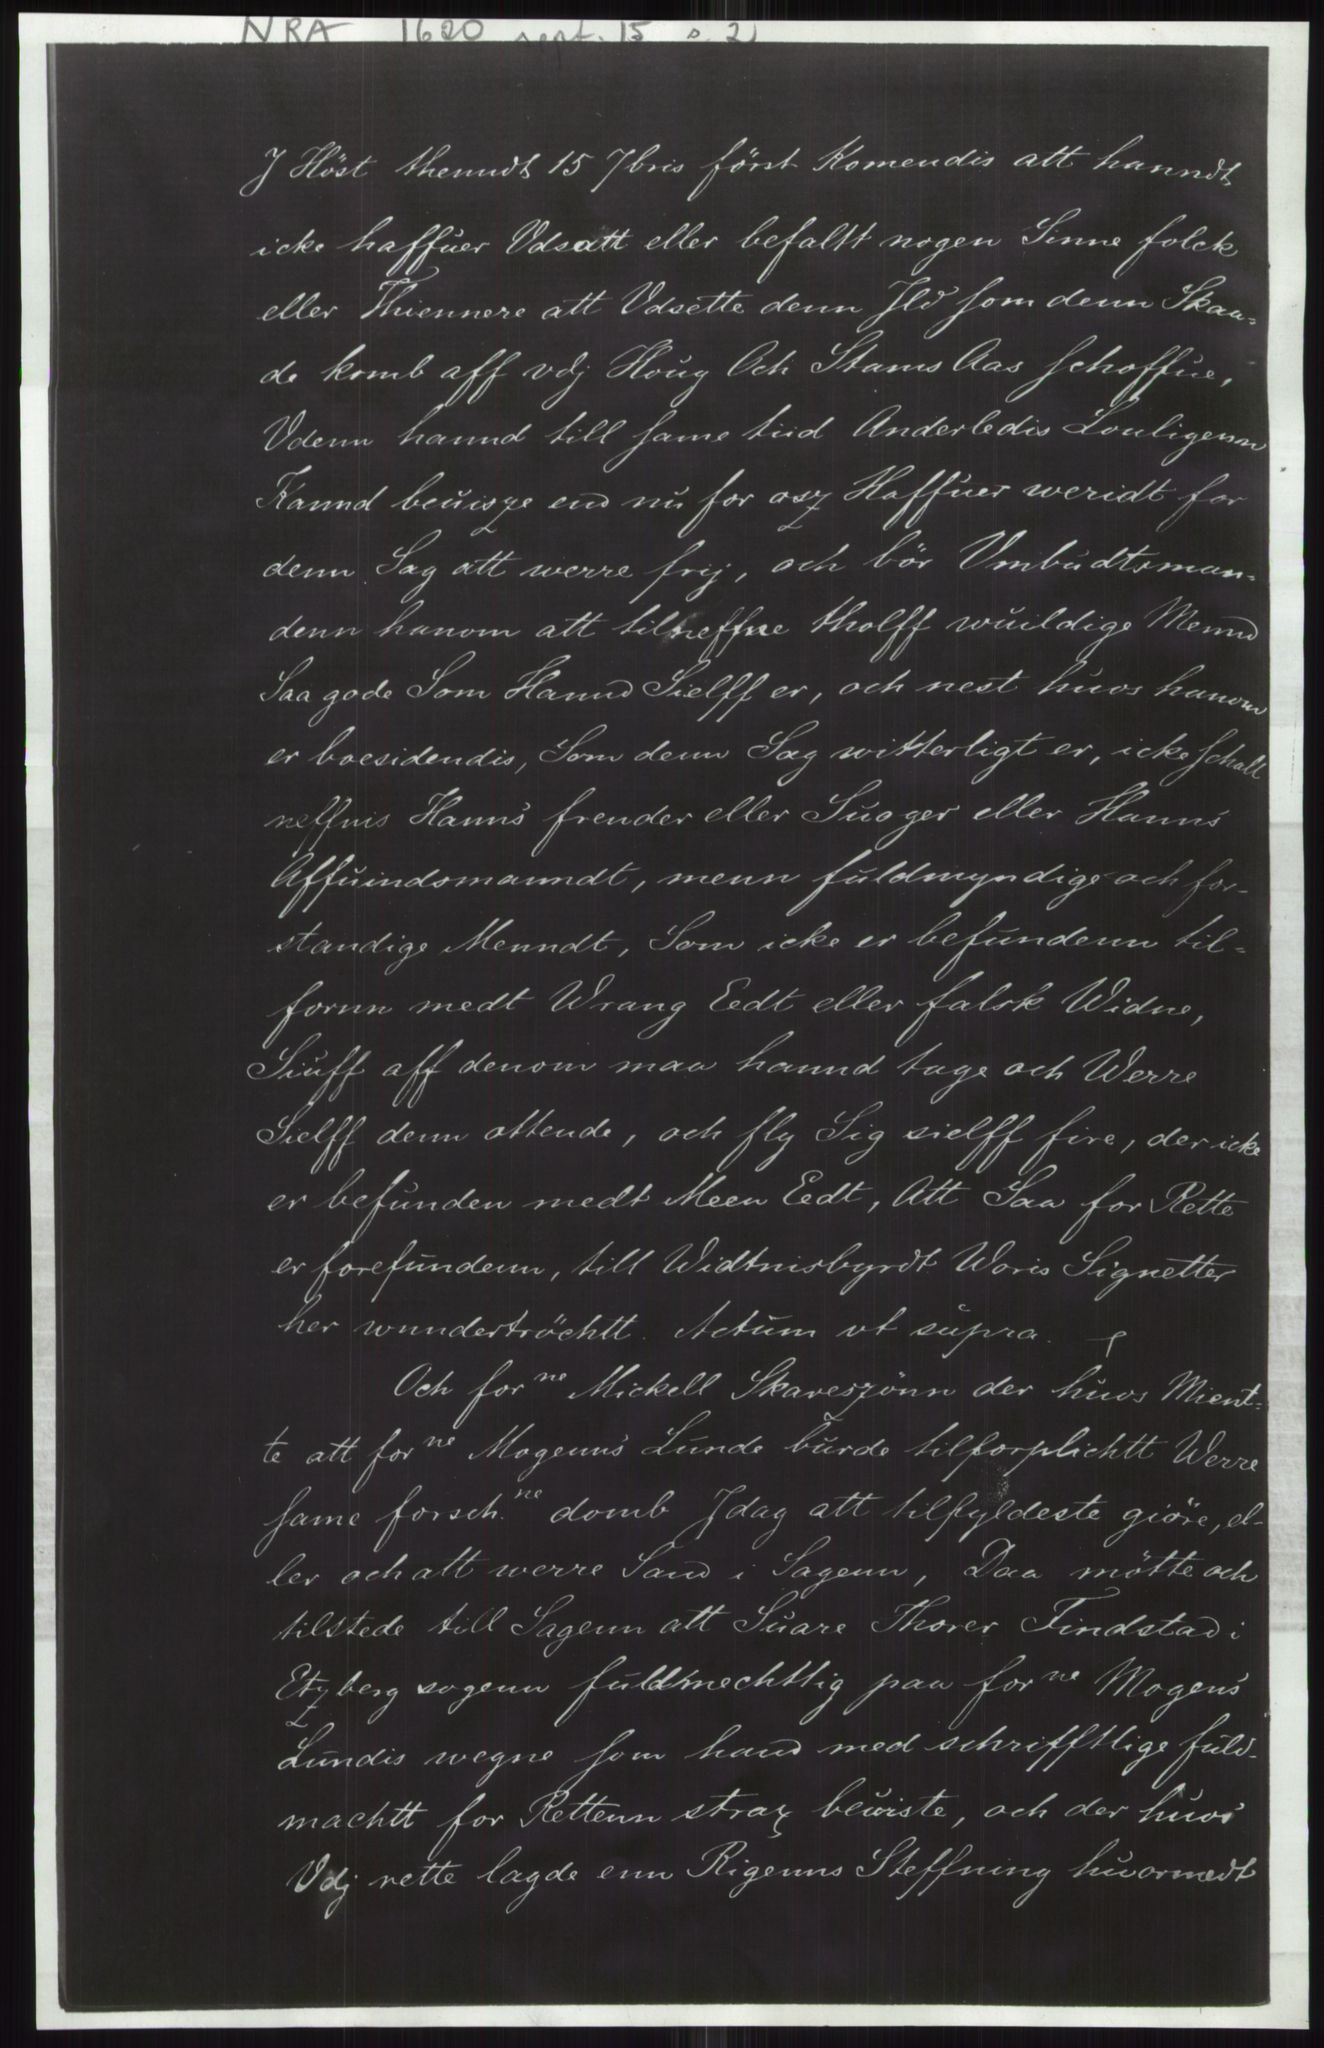 NRA 1620 sept. 15 s. 2
J Höst thenndt 15 7bris först Komendis att hanndt
icke haffuer Vdsatt eller befaltt nogen Sinne folck
eller Thiennere att Vdsette denn Jld som denn Skaa-
de komb aff vdj Houg Och Stams Aas schoffue,
Vdenn hannd till same tiid Anderledis Louligenn
Kannd beuisze end nu for osz Haffuer weridt for
denn Sag att werre frij, och bör Vmbudtsman-
denn hanom att tilneffne tholff wuildige Mennd
Saa gode Som Hannd Sielff er, och nest huos hanom
er boesidendis, Som denn Sag witterligt er, icke schall
neffnis Hanns frender eller Suoger eller Hanns
Affuindsmanndt, menn fuldmyndige och for-
standige Menndt, Som icke er befundenn til-
fornn medt Wrang Eedt eller falsk Widne,
Siuff aff denom maa hannd tage och Werre
Sielff denn ottende, och fly Sig sielff fire, der icke
er befunden medt Meen Eedt, Att Saa for Rette
er forefundenn, till Widtnisbyrdt Woris Signetter
her wundertröchtt. Actum vt supra.
Och forne Mickell Skareszönn der huos Mient-
te att forne Mogenns Lunde burde tilforplichtt Werre
same forsch.ne domb Jdag att tilfyldeste giöre, el-
ler och att werre Sand i Sagenn, Daa mötte och
tilstede till Sagenn att Suare Thorer Findstad i
Etzberg sogenn fuldmechtlig paa forne Mogens
Lundis wegne som hand med schrifftlige fuld-
machtt for Rettenn strax beuiste, och der huos
Vdj rette lagde enn Rigenns Steffning huormedt